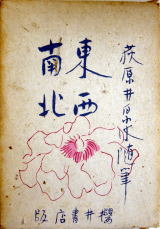 荻原井泉水随筆
東西
南北
櫻井書店版